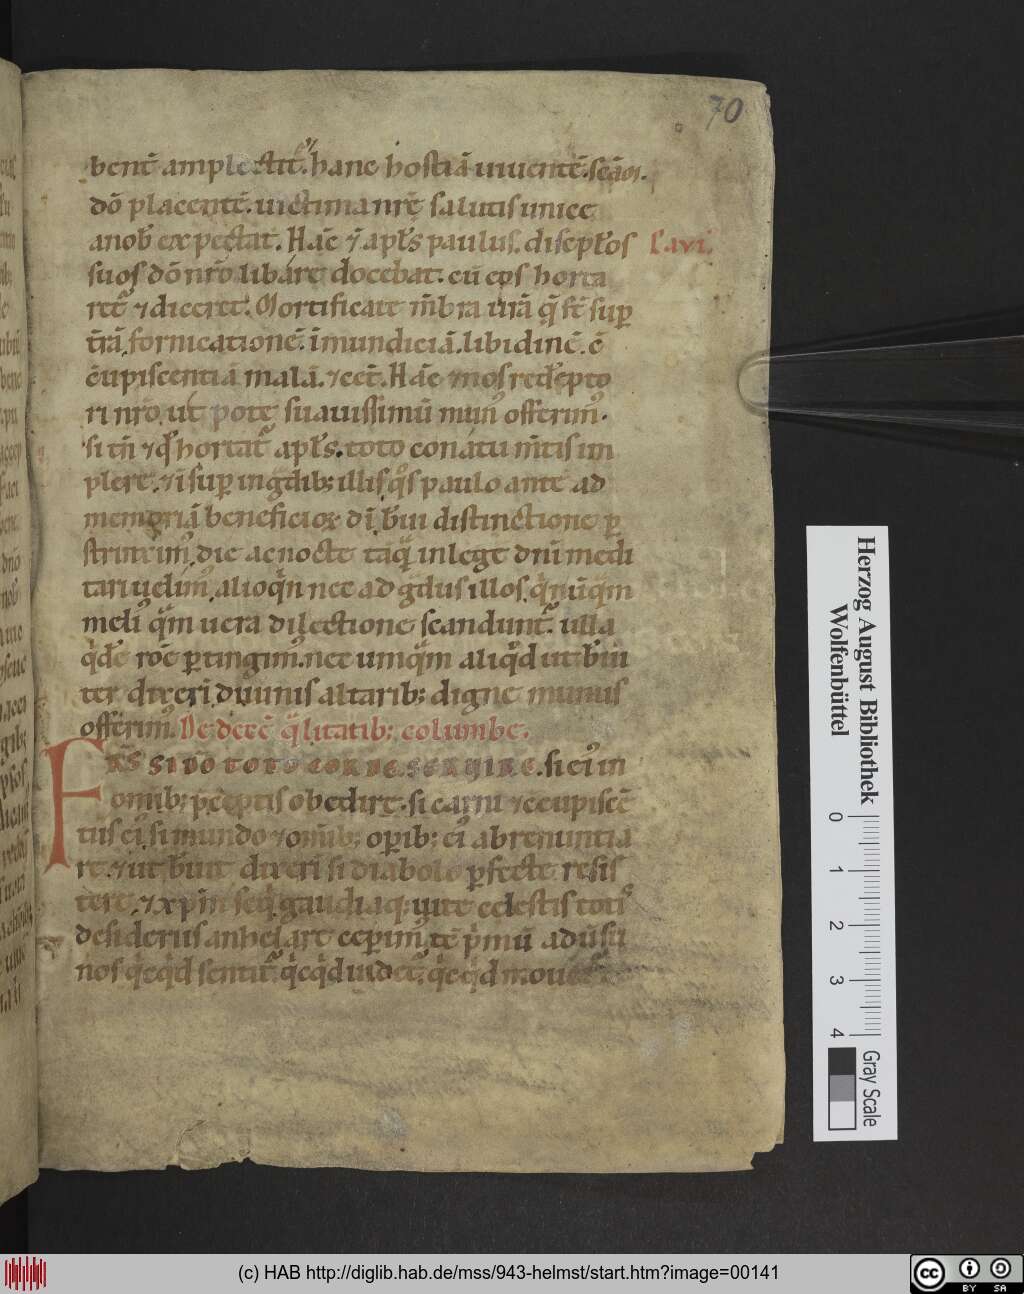 70
bent̄ amplectit̉. hanc hostiā uiuentē. scāɱ.
dō placentē. uictima nrę̄ salutis unice
a nob̄ expectat. Hāc & apl̄s paulus. discipl̄os
suos dō nr̄o libare docebat. cū eos horta
ret̉ & diceret. Mortificate m̄bra ur̄a q̨̄ st̄ suꝑ
t̄rā. fornicationē. īmundiciā. libidinē.
c̄cupiscentiā malā. & cet̄. Hāc & nos redēpto
ri nr̄o ut pote suauissimū mun̉ offerim̉.
si tn̄ & qd̄ hortat̉ apl̄s. toto conatu m̄tis im
plere. & ī suꝑ in gͣdib; illis qͦs paulo ante ad
memoriā beneficioꝝ dī breui distinctione ꝑ
strinxim̉. die ac nocte tāqͣ in lege dn̄i medi
tari uelim̉. alioqͥn nec ad gͣdus illos. qͥ nūqͣm
melỉ qͣm uera dilectione scandunt̉. ulla
ꝑtingim̉. nec umqͣm aliqͥd ut breui
ter dixerī diuinis altarib; digne munus
offerim̉. De decē qͣlitatib; columbe.
FRS̄ SI DŌ TOTO CORDE SERUIRE. si eỉ in
omīb; p̄ceptis obedire. si carni & c̄cupiscē
tiis eỉ. si mundo & om̄ib; oꝑib; eỉ abrenuntia
re. & ut breuit̉ dixerī si diabolo ꝑfecte resis
tere. & xp̄m seqͥ gaudiaq; uite celestis totỉ
desiderii anhelare ceꝑim̉.
nos qͥcqͥd sentit̉. qͥcqͥd uidet̉. qͥcqͥd
Herzog August Bibliothek
Wolfenbüttel
0 1 2 3 4
Gray Scale
(c) HAB http://diglib.hab.de/mss/943-helmst/start.htm?image=00141
cc BY SA